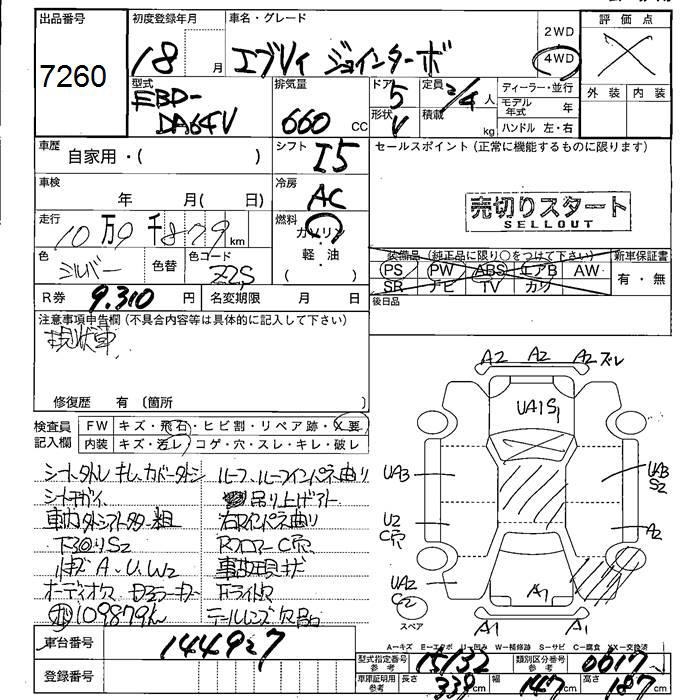 出品番号
7260
初度登録年月
18月
車名・グレード
エブリイ ジョインターボ
2WD
4WD
評価点
外装 内装
型式
EBD-
DA64V
排気量
660 CC
ドア 5
形状 V
定員 2/4 人
積載 kg
ディーラー・並行
モデル年式 年
ハンドル 左・右
車歴
自家用・( )
シフト I5
セールスポイント(正常に機能するものに限ります)
車検
年 月( 日)
冷房 AC
売切りスタート
SELLOUT
走行
10万9千879km
燃料
ガソリン
軽・油
色
シルバー
色替
色コード
Z2S
装備品(純正品に限り○をつけて下さい)
PS PW ABS エアB AW
SR ナビ TV カワ
新車保証書
有・無
R券 9.310 円
名変期限 月 日
後日品
注意事項申告欄(不具合内容等は具体的に記入して下さい)
現状車
修復歴 有 〔箇所
検査員記入欄
FW キズ・飛石・ヒビ割・リペア跡・X要
内装 キズ・汚レ・コゲ・穴・スレ・キレ・破レ
A2 A2 A2 ズレ
UA1S1
UA3
UA3
S2
U2
C穴
A2
UA2
C2
A1
スペア
A1 A1
ルーフ、ルーフインパネ曲り
吊り上げアト
右Rインパネ曲り
RフロアーC穴
下廻りS2
A.U.W2
109879k
A−キズ E−エクボ U−凹み W−補修跡 S−サビ C−腐食 XX−交換済
車台番号 144927
登録番号
型式指定番号 参考 15132
類別区分番号 参考 0017
車庫証明用 参考 長さ 339 cm 幅 147 cm 高さ 187 cm